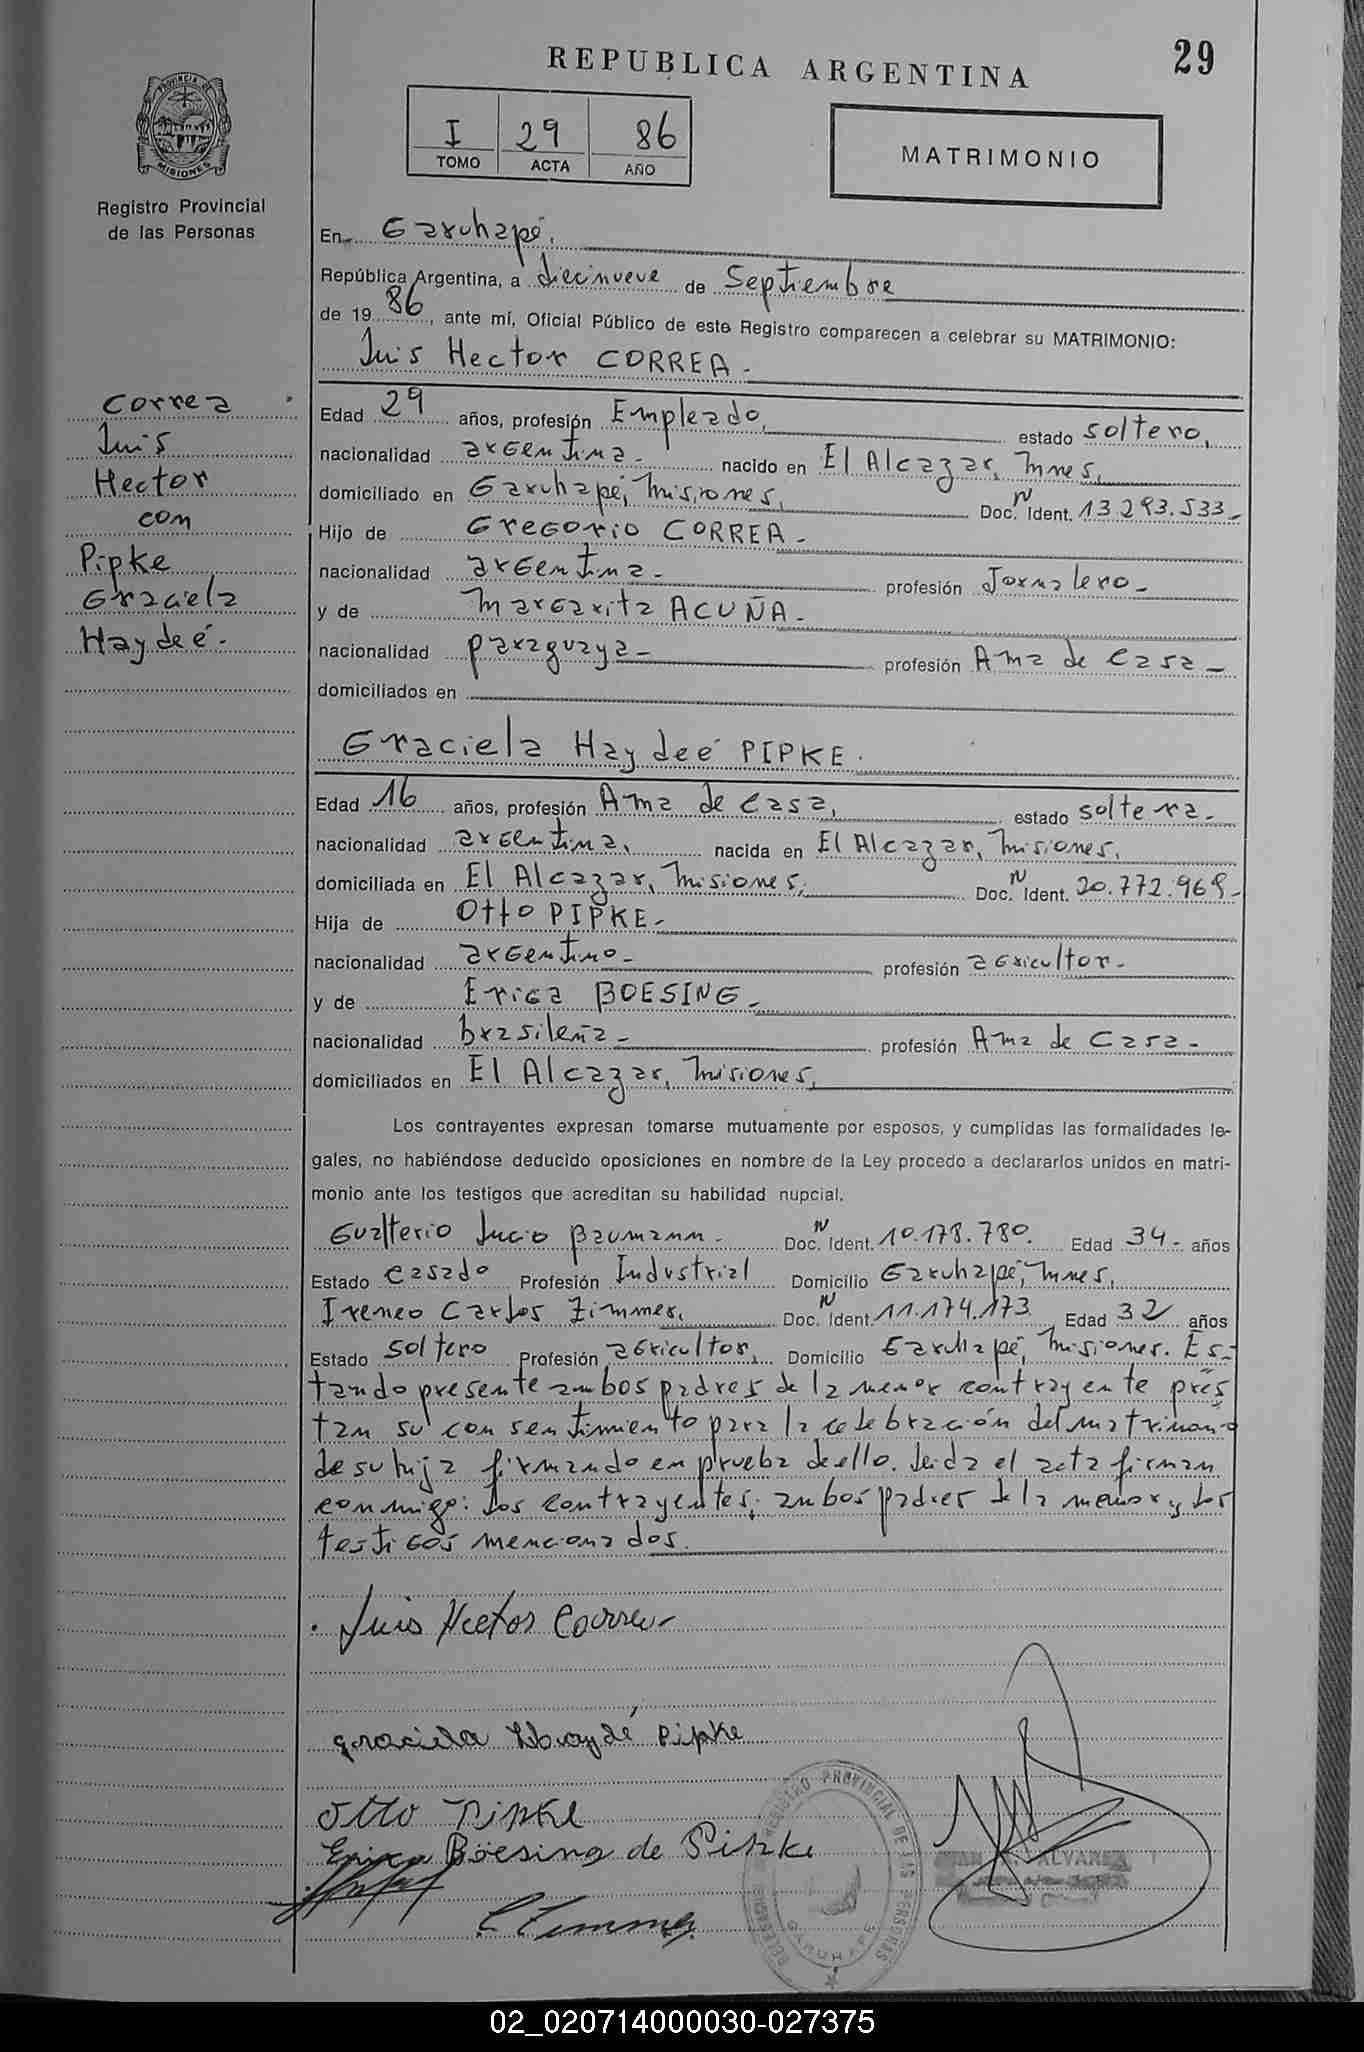 REPUBLICA ARGENTINA
29
PROVINCIA DE
MISIONES
Registro Provincial
de las Personas
I 29 86
TOMO ACTA AÑO
MATRIMONIO
En Garuhapé,
República Argentina, a diecinueve de Septiembre
de 19 86, ante mí, Oficial Público de este Registro comparecen a celebrar su MATRIMONIO:
Luis Hector CORREA.
Correa
Luis
Hector
con
Pipke
Graciela
Haydeé.
Edad 29 años, profesión Empleado, estado soltero,
nacionalidad argentina. nacido en El Alcazar, Mnes,
domiciliado en Garuhapé, Misiones, Doc. N Ident. 13.293.533.
Hijo de Gregorio CORREA.
nacionalidad argentina. profesión Jornalero.
y de Margarita ACUÑA.
nacionalidad paraguaya profesión Ama de Casa
domiciliados en
Graciela Haydeé PIPKE.
Edad 16 años, profesión Ama de Casa, estado soltera.
nacionalidad argentina, nacida en El Alcazar, Misiones,
domiciliada en El Alcazar, Misiones, Doc. N Ident. 20.772.969.
Hija de Otto PIPKE.
nacionalidad argentino. profesión agricultor.
y de Erica BOESING.
nacionalidad brasileña profesión Ama de Casa.
domiciliados en El Alcazar, Misiones,
Los contrayentes expresan tomarse mutuamente por esposos, y cumplidas las formalidades le-
gales, no habiéndose deducido oposiciones en nombre de la Ley procedo a declararlos unidos en matri-
monio ante los testigos que acreditan su habilidad nupcial.
Gualterio Lucio Baumann. Doc. N Ident. 10.178.780. Edad 34. años
Estado Casado Profesión Industrial Domicilio Garuhapé, Mnes,
Ireneo Carlos Zimmer, Doc. N Ident. 11.174.173. Edad 32 años
Estado Soltero Profesión agricultor, Domicilio Garuhapé, Misiones. Es-
tando presente ambos padres de la menor contrayente pres
tan su consentimiento para la celebración del matrimonio
de su hija firmando en prueba de ello. Leida el acta firman
conmigo: los contrayentes; ambos padres de la menor y los
testigos mencionados.
Luis Hector Correa
graciela Haydé Pipke
Otto Pipke
Erica Böesing de Pipke
C Zimmer
REGISTRO PROVINCIAL DE LAS PERSONAS
GARUHAPE
ALVAREZ
02_020714000030-027375